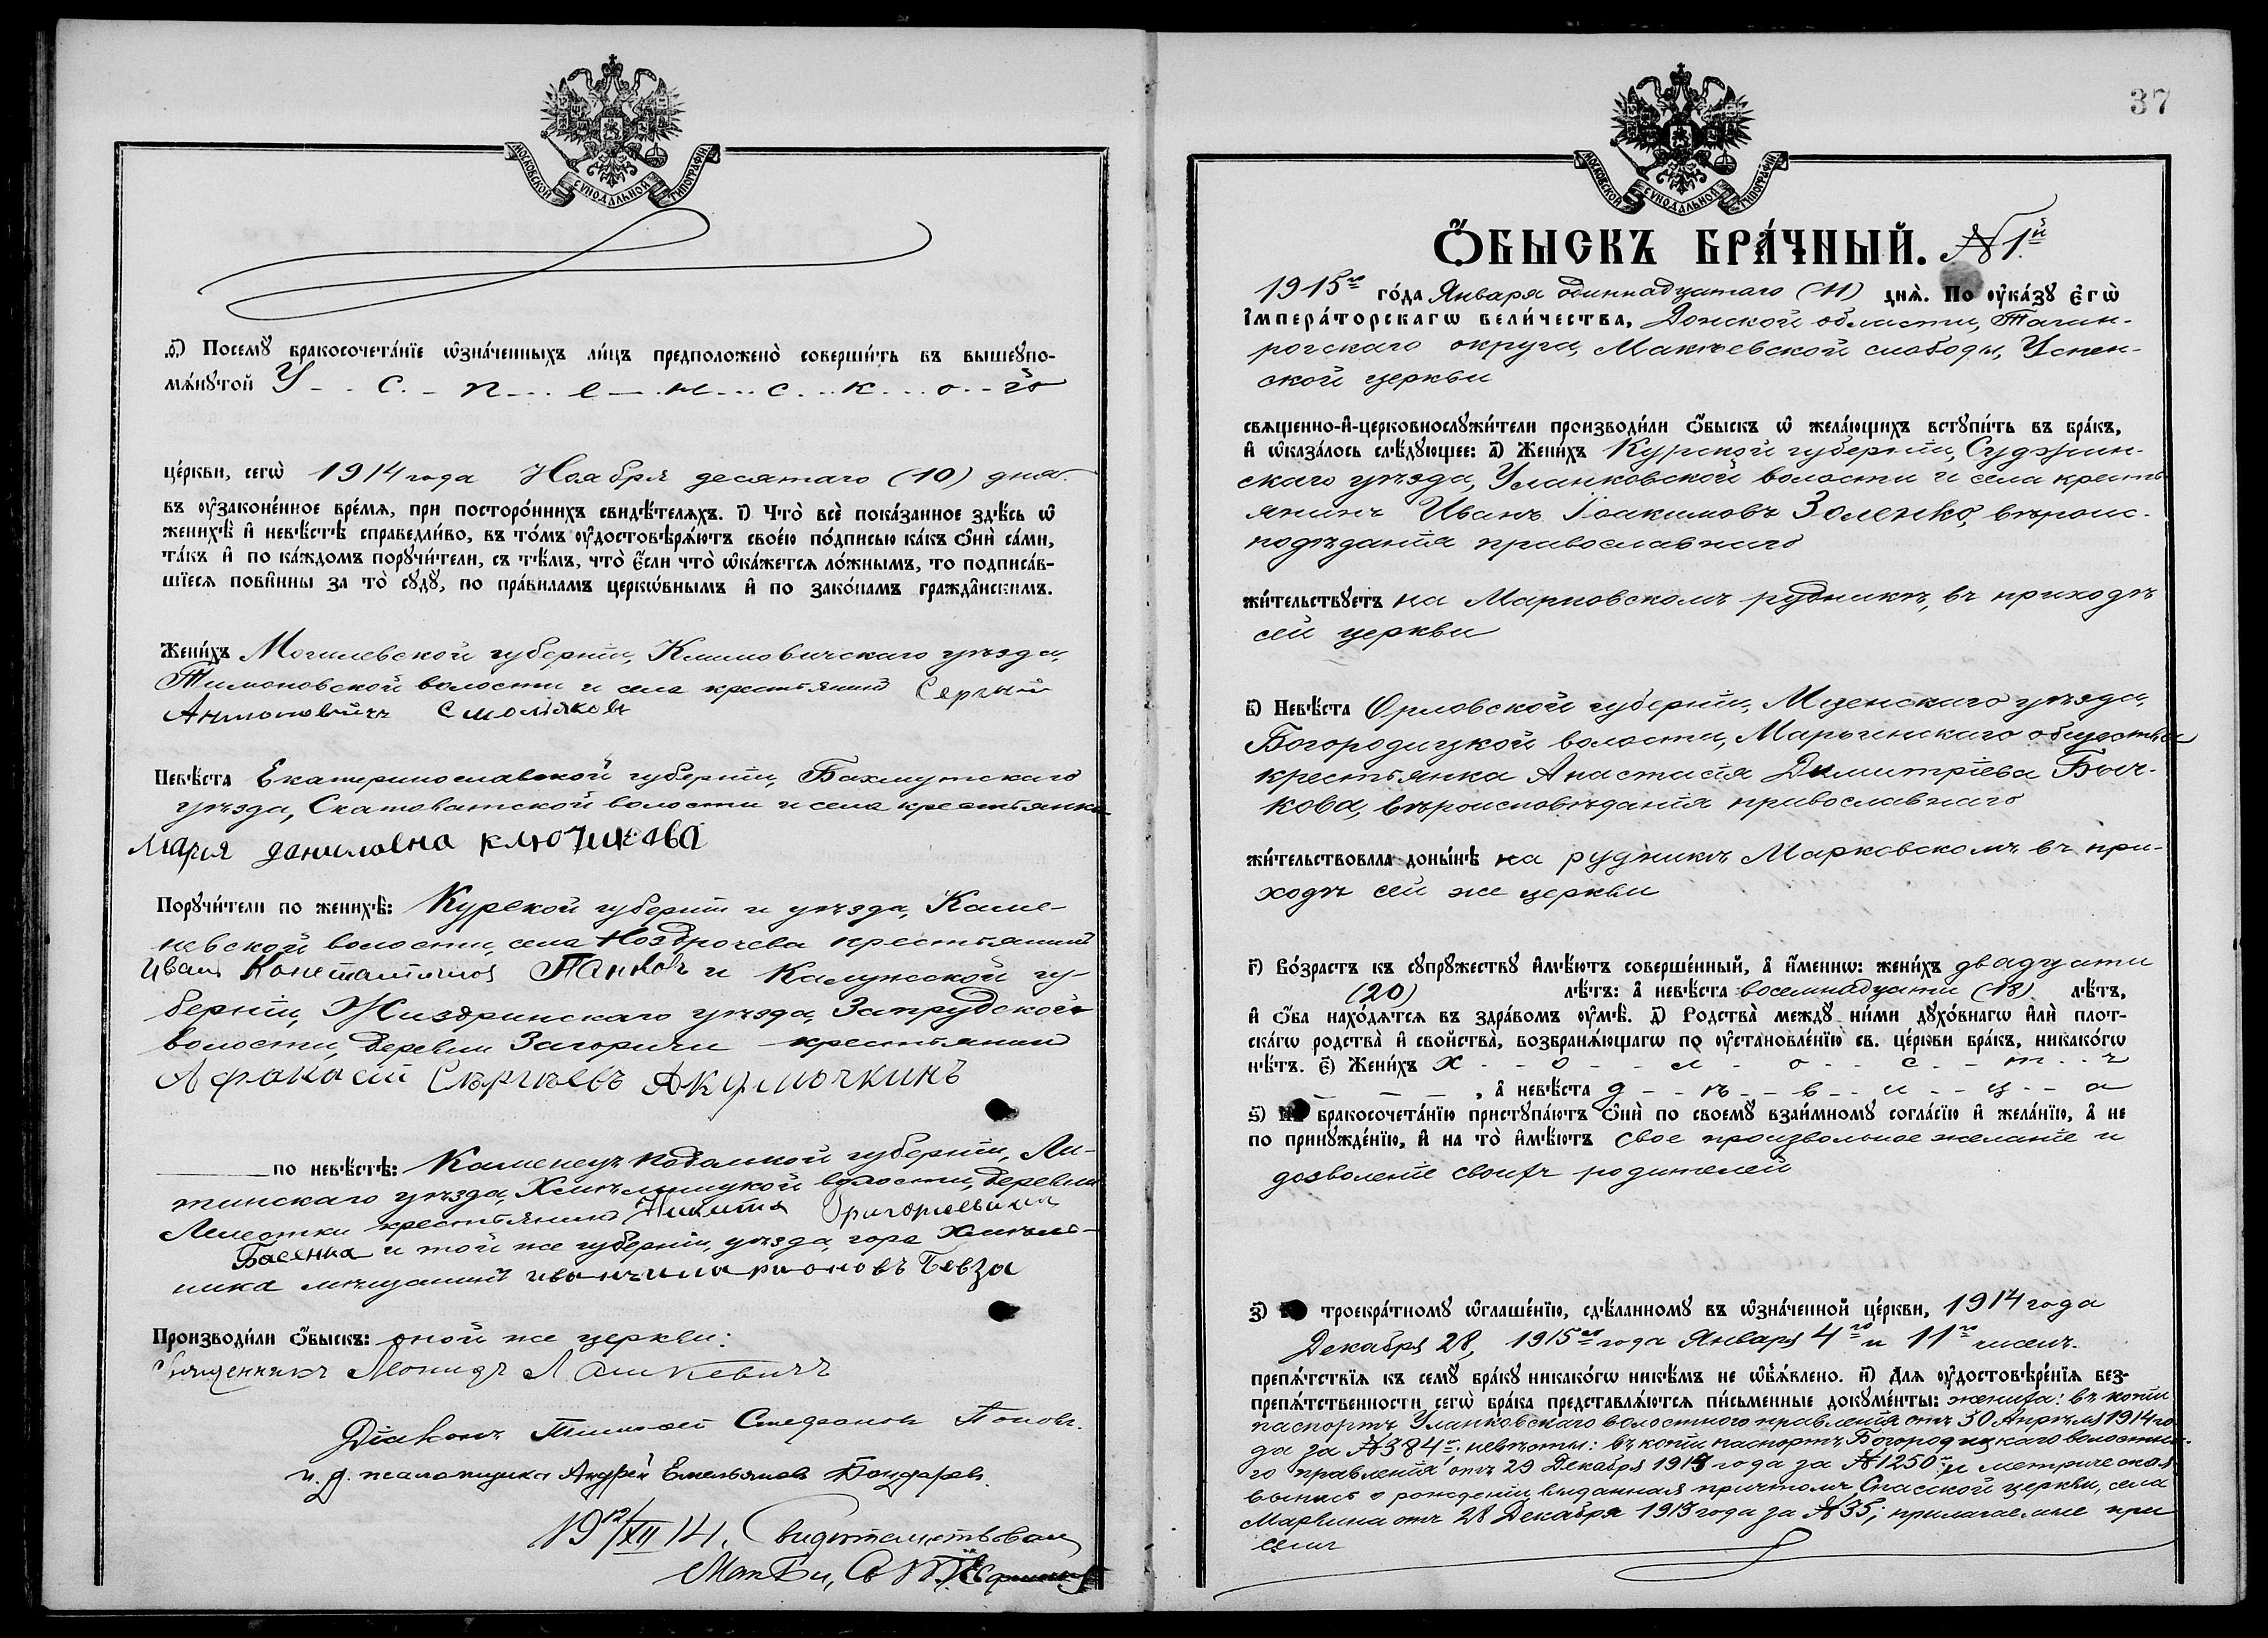 МОСКОВСКОЙ СѴНОДАЛЬНОЙ ТИПОГРАФІИ
ѳ҃) Посемꙋ бракосочета́нїе ѡ҆зна́ченныхъ ли́цъ предположено̀ соверши́ть въ вышеꙋпо-
мѧ́нꙋтой У - . с. - п - .. е - . н ... с . .. к ... о . - й
це́ркви, сегѡ̀ 1914 года Ноября десятаго (10) дня.
въ ᲂу҆зако́ненное вре́мѧ, при посторо́ннихъ свидѣ́телѧхъ. і҃) Что̀ всѐ пока́занное здѣ́сь ѡ҆
женихѣ̀ и҆ невѣ́стѣ справедли́во, въ то́мъ ᲂу҆достовѣрѧ́ютъ свое́ю по́дписью ка́къ ѻ҆нѝ са́ми,
та́къ и҆ по ка́ждомъ порꙋчи́тели, съ тѣ́мъ, что̀ є҆́сли что̀ ѡ҆ка́жетсѧ ло́жнымъ, то подписа́в-
шїесѧ пови́нны за то̀ сꙋдꙋ̀, по пра́виламъ церкѡ́внымъ и҆ по зако́намъ гражда́нскимъ.
Жени́хъ Могилевской губерніи, Климовичскаго уѣзда,
Тимоновской волости и села крестьянинъ Сергѣй
Антоновичъ Смоляковъ
Невѣ́ста Екатеринославской губерніи, Бахмутскаго
уѣзда, Скотоватской волости и села крестьянка
Мария даниловна ключикова
Порꙋчи́тели по женихѣ̀: Курской губерніи и уѣзда, Каме-
невской волости, села Ноздрочева крестьянинъ
Иванъ Константиновъ Панковъ и Калужской гу-
берніи, Жиздринскаго уѣзда, Запрудской
волости, деревни Загоричи крестьянинъ
Афанасій Сергѣевъ Акулочкинъ
по невѣ́стѣ: Каменецъ Подольской губерніи, Ли-
тинскаго уѣзда, Хмѣльницкой волости, деревни
крестьянинъ Никита Григорьевичъ
и той же губерніи, уѣзда, гора Хмѣль-
ника мѣщанинъ иванъ иларионовъ Бевза
Производи́ли ѻ҆́быскъ: оной же церкви:
Священникъ Леонидъ
Діаконъ Тимофей Стефановъ Поповъ.
и. д. псаломщика Андрей Емельяновъ Бондарев.
19 12/XII 14. Свидѣтельствовалъ
37
МОСКОВСКОЙ СѴНОДАЛЬНОЙ ТИПОГРАФІИ
Ѻ҆́БЫСКЪ БРА́ЧНЫЙ. № 1.й
1915го го́да Января одиннадцатаго (11) днѧ̀. По ᲂу҆ка́зꙋ є҆гѡ̀
і҆мпера́торскагѡ вели́чества, Донской области, Таган-
рогскаго округа, Макѣевской слободы, Успен-
ской церкви
свѧщенно-и҆-церковнослꙋжи́тели производи́ли ѻ҆́быскъ ѡ҆ жела́ющихъ встꙋпи́ть въ бра́къ,
и҆ ѡ҆каза́лось слѣ́дꙋющее: а҃) Жени́хъ Курской губерніи, Суджан-
скаго уѣзда, Уланковской волости и села кресть-
янинъ Иванъ Іоакимовъ Золенко, вѣроис-
повѣданія православнаго
жи́тельствꙋетъ на Марковскомъ рудникѣ, въ приходѣ
сей церкви
в҃) Невѣ́ста Орловской губерніи, Мценскаго уѣзда,
Богородицкой волости, Марьинскаго общества
крестьянка Анастасія Димитріева Быч-
кова, вѣроисповѣданія православнаго
жи́тельствовала доны́нѣ на рудникѣ Марковскомъ въ при-
ходѣ сей же церкви
г҃) Во́зрастъ къ сꙋпрꙋжествꙋ и҆мѣ́ютъ соверше́нный, а҆ и҆́меннѡ: жени́хъ двадцати
(20) лѣ́тъ: а҆ невѣ́ста восемнадцати (18) лѣ́тъ,
и҆ ѻ҆́ба нахо́дѧтсѧ въ здра́вомъ ᲂу҆мѣ̀. д҃) Родства̀ междꙋ̀ ни́ми дꙋхо́внагѡ и҆лѝ плот-
ска́гѡ родства̀ и҆ свойства̀, возбранѧ́ющагѡ по ᲂу҆становле́нїю св. це́ркви бра́къ, никако́гѡ
нѣ́тъ. є҃) Жени́хъ х - - о - - л - - о - - с - - т - - ъ
, а҆ невѣ́ста д - - ѣ - - в - - и - - ц - - а
ѕ҃) бракосочета́нїю пристꙋпа́ютъ ѻ҆нѝ по своемꙋ̀ взаи́мномꙋ согла́сїю и҆ жела́нїю, а҆ не
по принꙋжде́нїю, и҆ на то̀ и҆мѣ́ютъ свое произвольное желаніе и
дозволеніе своихъ родителей
з҃) троекра́тномꙋ ѡ҆глаше́нїю, сдѣ́ланномꙋ въ ѡ҆зна́ченной це́ркви, 1914 года
Декабря 28, 1915го года Января 4го и 11го чиселъ.
препѧ́тствїѧ къ семꙋ̀ бра́кꙋ никако́гѡ никѣ́мъ не ѡ҆б̾ѧ́влено. и҃) Длѧ ᲂу҆достовѣре́нїѧ без-
препѧ́тственности сегѡ̀ бра́ка представлѧ́ютсѧ пи́сьменные докꙋме́нты: жениха: въ копіи
паспортъ Уланковскаго волостного правленія отъ 30 Апрѣля 1914 го-
да за № 384м; невѣсты: въ копіи паспортъ Богородицкаго волостно-
го правленія отъ 29 Декабря 1914 года за № 1250 и метрическая
выпись о рожденіи выданная причтомъ Спасской церкви, села
Марьина отъ 28 Декабря 1913 года за № 35; прилагаемые при
семъ